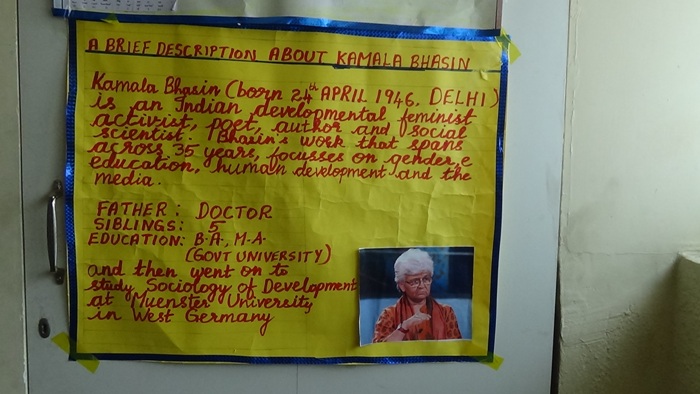 A BRIEF DESCRIPTION ABOUT KAMALA BHASIN
Kamala Bhasin (born 24th APRIL 1946, DELHI)
is an Indian developmental feminist
activist, poet, author and social
scientist. Bhasin's work that spans
across 35 years, focusses on gender, e
education, human development and the
media.
FATHER: DOCTOR
SIBLINGS: 5
EDUCATION: B.A, M.A.
(GOVT UNIVERSITY)
and then went on to
study Sociology of Development
at Muenster University
in West Germany